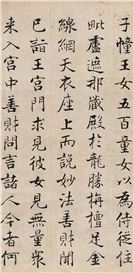 子幢王女五百以為侍從住
毗盧遮那藏殿於龍勝栴檀足金
線網天衣座上而說妙法善財聞
已詣王宮門求見彼女見無量衆
來入宮中善財問言諸人今者何